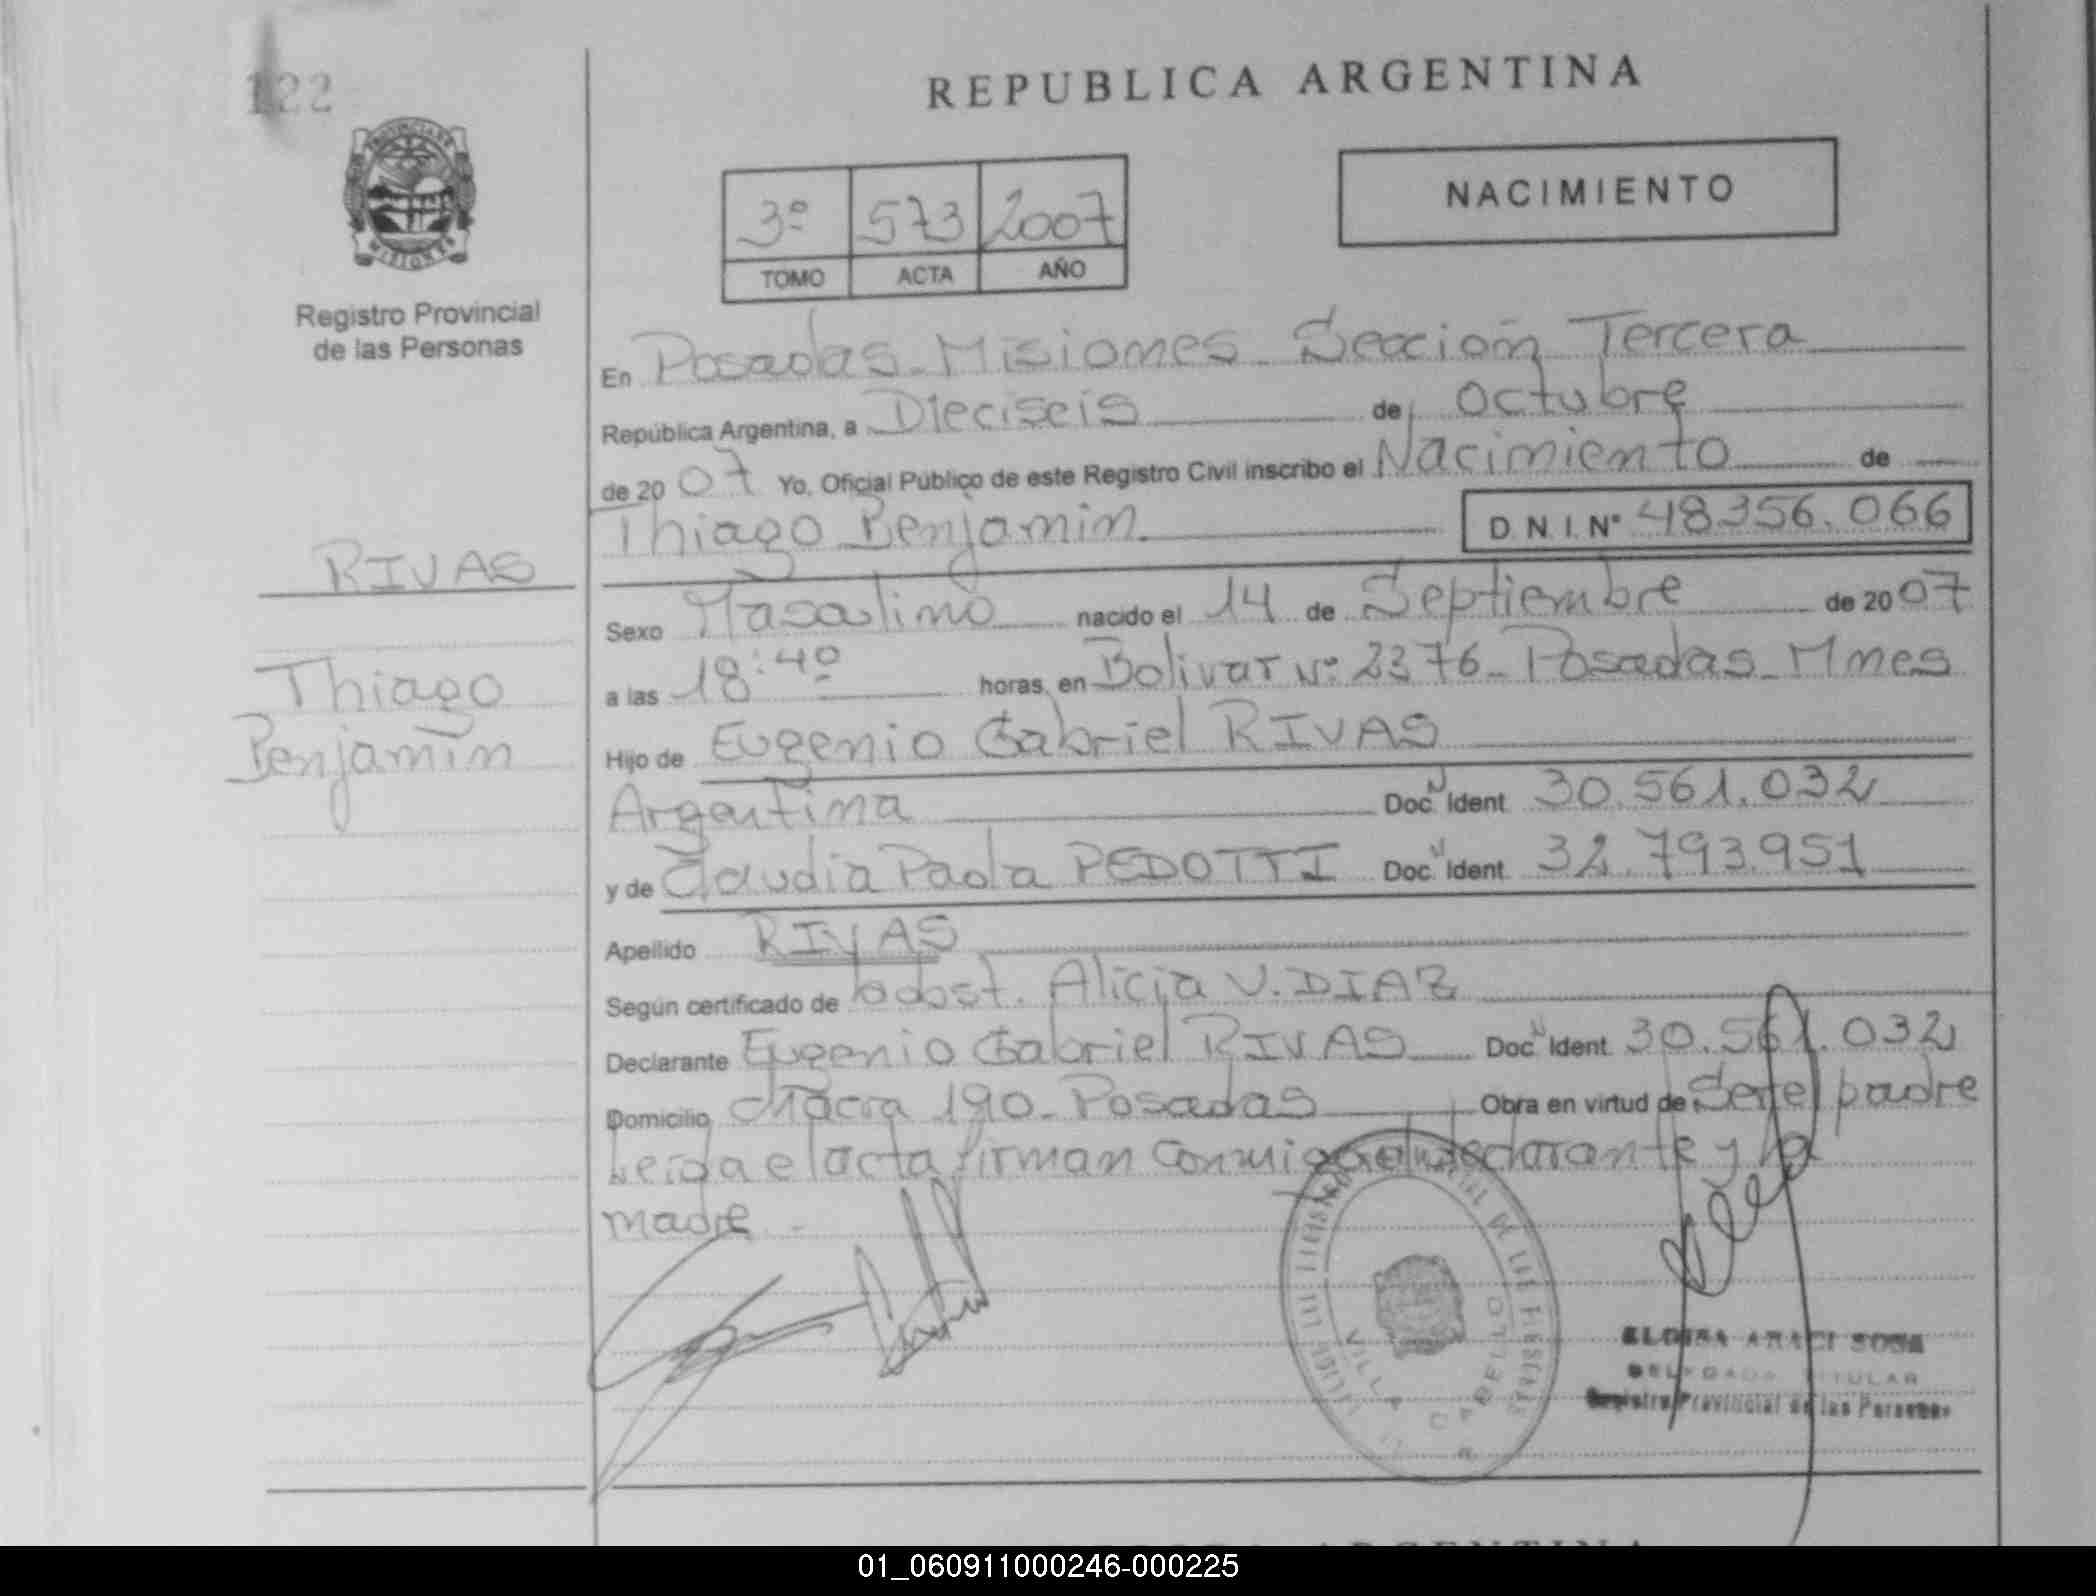 122
PROVINCIA DE
MISIONES
Registro Provincial
de las Personas
RIVAS
Thiago
Benjamin
REPUBLICA ARGENTINA
3º 573 2007
TOMO ACTA AÑO
NACIMIENTO
En Posadas - Misiones - Sección Tercera
República Argentina, a Dieciseis de Octubre
de 2007 Yo, Oficial Público de este Registro Civil inscribo el Nacimiento de
Thiago Benjamin. D.N.I. Nº 48356.066
Sexo Masculino nacido el 14 de Septiembre de 2007
a las 18:40 horas, en Bolivar Nº 2376 - Posadas - Mnes
Hijo de Eugenio Gabriel RIVAS
Argentina Doc. Ident. 30.561.032
y de Claudia Paola PEDOTTI Doc. Ident. 32.793.951
Apellido RIVAS
Según certificado de obst. Alicia V. DIAZ
Declarante Eugenio Gabriel RIVAS Doc. Ident. 30.561.032
Domicilio Chacra 190 - Posadas Obra en virtud de Ser el padre
Leida el acta firman conmigo el declarante y la
madre -
VILLA CABELLO
ELOISA ARACI SOSA
DELEGADA TITULAR
Registro Provincial de las Personas
01_060911000246-000225